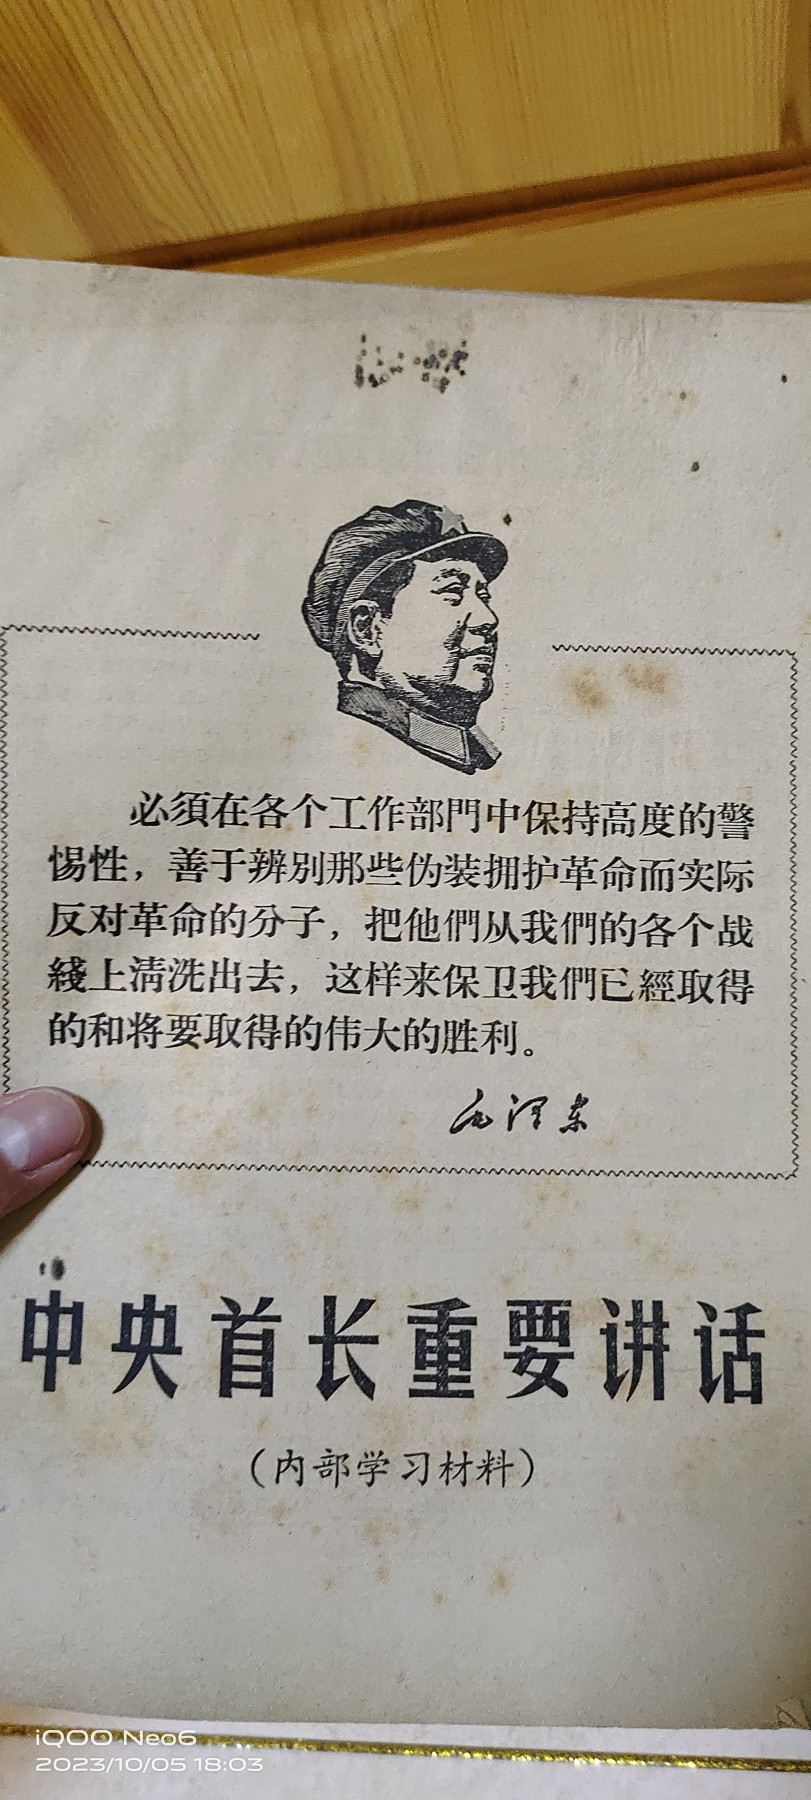 必須在各个工作部門中保持高度的警
惕性，善于辨別那些伪装拥护革命而实际
反对革命的分子，把他們从我們的各个战
綫上清洗出去，这样来保卫我們已經取得
的和将要取得的伟大的胜利。
毛泽东
中央首长重要讲话
（内部学习材料）
iQOO Neo6
2023/10/05 18:03